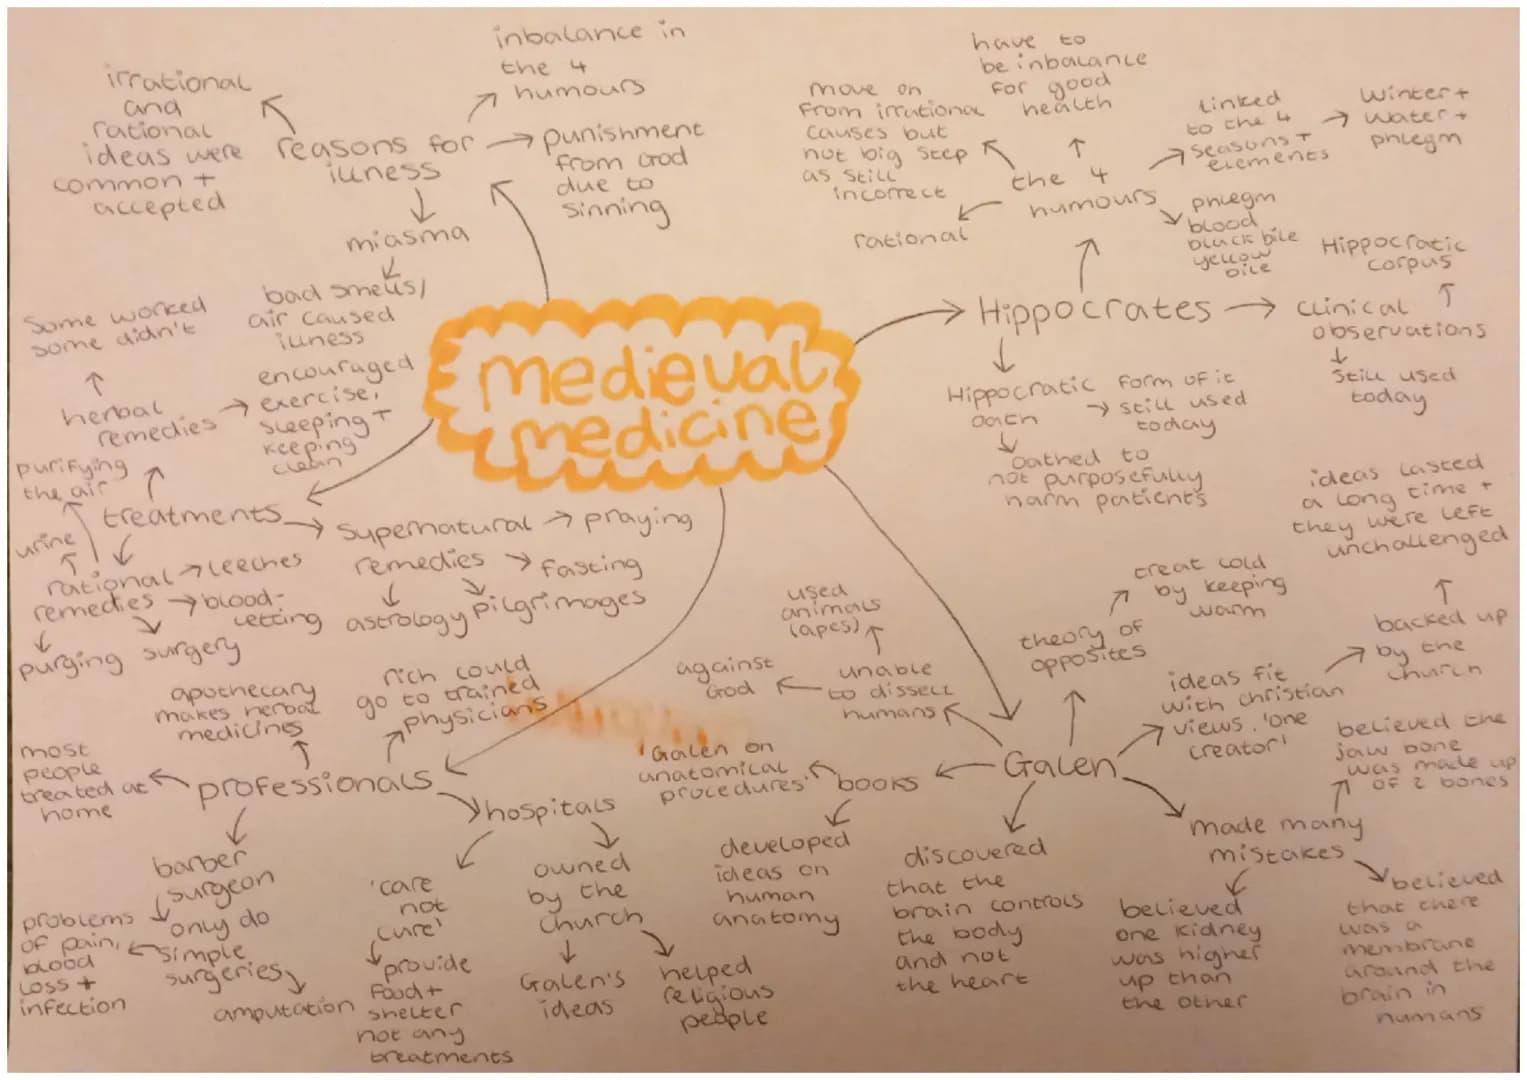 medieval
medicine
reasons for
illness
irrational
and
rational
ideas were
common +
accepted
inbalance in
the 4
humours
punishment
from God
due to
sinning
miasma
bad smells/
air caused
illness
Hippocrates
the 4
humours
move on
from irrational
causes but
not big step
as still
incorrect
have to
be inbalance
for good
health
linked
to the 4
seasons +
elements
winter +
water +
phlegm
rational
phlegm
blood
black bile
yellow
bile
clinical
observations
Hippocratic
corpus
still used
today
Hippocratic
oath
form of it
still used
today
oathed to
not purposefully
harm patients
treatments
herbal
remedies
some worked
some didn't
encouraged
exercise,
sleeping +
keeping
clean
rational
remedies
purifying
the air
urine
leeches
blood-
letting
surgery
purging
supernatural
remedies
praying
fasting
pilgrimages
astrology
professionals
most
people
treated at
home
apothecary
makes herbal
medicines
rich could
go to trained
physicians
barber
surgeon
only do
simple
surgeries
problems
of pain,
blood
loss +
infection
amputation
hospitals
'care
not
cure'
provide
food +
shelter
not any
treatments
owned
by the
church
Galen's
ideas
helped
religious
people
Galen
unable
to dissect
humans
used
animals
(apes)
against
God
theory of
opposites
treat cold
by keeping
warm
ideas fit
with christian
views. 'one
creator'
backed up
by the
church
ideas lasted
a long time +
they were left
unchallenged
books
'Galen on
anatomical
procedures'
developed
ideas on
human
anatomy
discovered
that the
brain controls
the body
and not
the heart
made many
mistakes
believed the
jaw bone
was made up
of 2 bones
believed
one kidney
was higher
up than
the other
believed
that there
was a
membrane
around the
brain in
humans